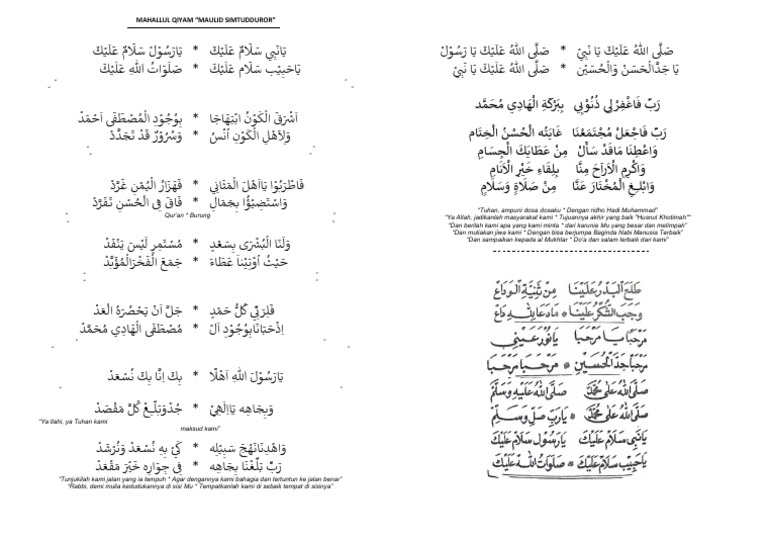 MAHALLUL QIYAM "MAULID SIMTUDDUROR"
يَانَبِي سَلَامٌ عَلَيْكَ * يَارَسُوْلْ سَلَامٌ عَلَيْكَ
يَاحَبِيْب سَلَام عَلَيْكَ * صَلَوَاتُ اللهِ عَلَيْكَ
اَشْرَقَ الْكَوْنُ ابْتِهَاجَا * بِوُجُودِ الْمُصْطَفٰى اَحْمَدْ
وَلِاَهْلِ الْكَوْنِ اُنْسُ * وَسُرُورٌ قَدْ تَجَدَّدْ
فَاطْرَبُوْا يَااَهْلَ الْمَثَانِي * فَهَزَارُ الْيُمْنِ غَرَّدْ
وَاسْتَضِيْؤُا بِجَمَالٍ * فَاقَ فِى الْحُسْنِ تَفَرَّدْ
Qur'an * Burung
وَلَنَا الْبُشْرَى بِسَعْدٍ * مُسْتَمِرٍ لَيْسَ يَنْفَدْ
حَيْثُ اُوْتِيْنَا عَطَاءً * جَمَعَ الْفَخْرَالْمُؤَبَّدْ
فَلِرَبِّي كُلُّ حَمْدٍ * جَلَّ اَنْ يَحْصُرَهُ الْعَدْ
اِذْحَبَانَابِوُجُودِ الْ * مُصْطَفَى الْهَادِي مُحَمَّدْ
يَارَسُوْلَ اللهِ اَهْلًا * بِكَ اِنَّا بِكَ نُسْعَدْ
وَبِجَاهِه يَااِلٰهِيْ * جُدْوَبَلِّغْ كُلَّ مَقْصَدْ
"Ya Ilahi, ya Tuhan kami
maksud kami"
وَاهْدِنَانَهْجَ سَبِيْلِه * كَيْ بِه نُسْعَدْ وَنُرْشَدْ
رَبِّ بَلِّغْنَا بِجَاهِه * فِى جِوَارِه خَيْرَ مَقْعَدْ
"Tunjukilah kami jalan yang ia tempuh * Agar dengannya kami bahagia dan tertuntun ke jalan benar"
"Rabbi, demi mulia kedudukannya di sisi Mu * Tempatkanlah kami di sebaik tempat di sisinya"
صَلَّى اللهُ عَلَيْكَ يَا نَبِيْ * صَلَّى اللهُ عَلَيْكَ يَا رَسُوْلْ
يَا جَدَّالْحَسَنْ وَالْحُسَيْن * صَلَّى اللهُ عَلَيْكَ يَا نَبِيْ
رَبِّ فَاغْفِرْلِى ذُنُوْبِي بِبَرْكَةِ الْهَادِي مُحَمَّد
رَبِّ فَاجْعَلْ مُجْتَمَعْنَا غَايَتُه الْحُسْنُ الْخِتَام
وَاعْطِنَا مَاقَدْ سَأَلْ مِنْ عَطَايَكَ الْجِسَامِ
وَاكْرِمِ الْاَرْاحَ مِنَّا بِلِقَاءِ خَيْرِ الْاَنَامِ
وَابْلِغِ الْمُخْتَارَ عَنَّا مِنْ صَلَاةٍ وَسَلَامٍ
"Tuhan, ampuni dosa dosaku * Dengan ridho Hadi Muhammad"
"Ya Allah, jadikanlah masyarakat kami * Tujuannya akhir yang baik "Husnul Khotimah""
"Dan berilah kami apa yang kami minta * dari karunia Mu yang besar dan melimpah"
"Dan muliakan jiwa kami * Dengan bisa berjumpa Baginda Nabi Manusia Terbaik"
"Dan sampaikan kepada al Mukhtar * Do'a dan salam terbaik dari kami"
طَلَعَ الْبَدْرُ عَلَيْنَا مِنْ ثَنِيَّةِ الْوَدَاعْ
وَجَبَ الشُّكْرُ عَلَيْنَا * مَادَعَا لِلّٰهِ دَاعْ
مَرْحَبًا يَا مَرْحَبًا يَانُوْرَ عَيْنِيْ
مَرْحَبًا جَدَّ الْحُسَيْنِ * مَرْحَبًا مَرْحَبًا
صَلَّى اللهُ عَلَى مُحَمَّدْ صَلَّى اللهُ عَلَيْهِ وَسَلَّمْ
صَلَّى اللهُ عَلَى مُحَمَّدْ * يَارَبِّ صَلِّ وَسَلِّمْ
يَانَبِيْ سَلَامْ عَلَيْكَ يَارَسُوْلْ سَلَامْ عَلَيْكَ
يَاحَبِيْبْ سَلَامْ عَلَيْكَ * صَلَوَاتُ اللهِ عَلَيْكَ